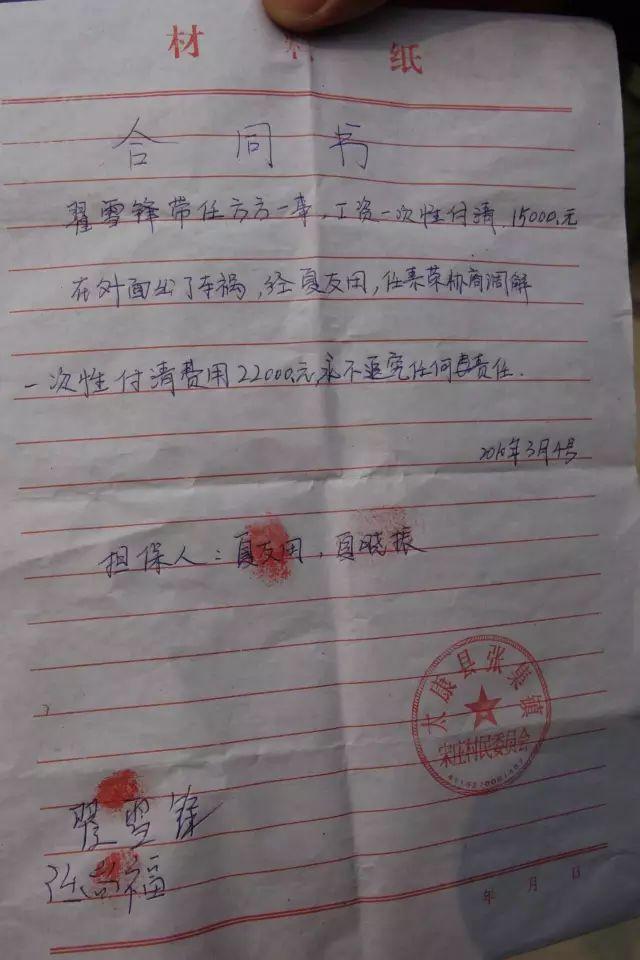 材 料 纸
合 同 书
翟雪锋带任方方一事,工资一次性付清,15000.元
在外面出了车祸,经夏友田,任秉荣协商调解
一次性付清费用22000.元,永不追究任何责任.
年3月4号
担保人:夏友田,夏晓振
太康县张集镇
宋庄村民委员会
翟雪锋
任福
年 月 日